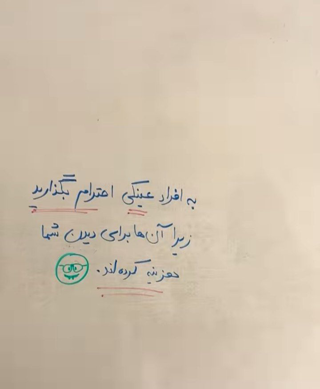 به افراد عینکی احترام بگذارید
زیرا آن ها برای دیدن شما
هزینه کرده اند.